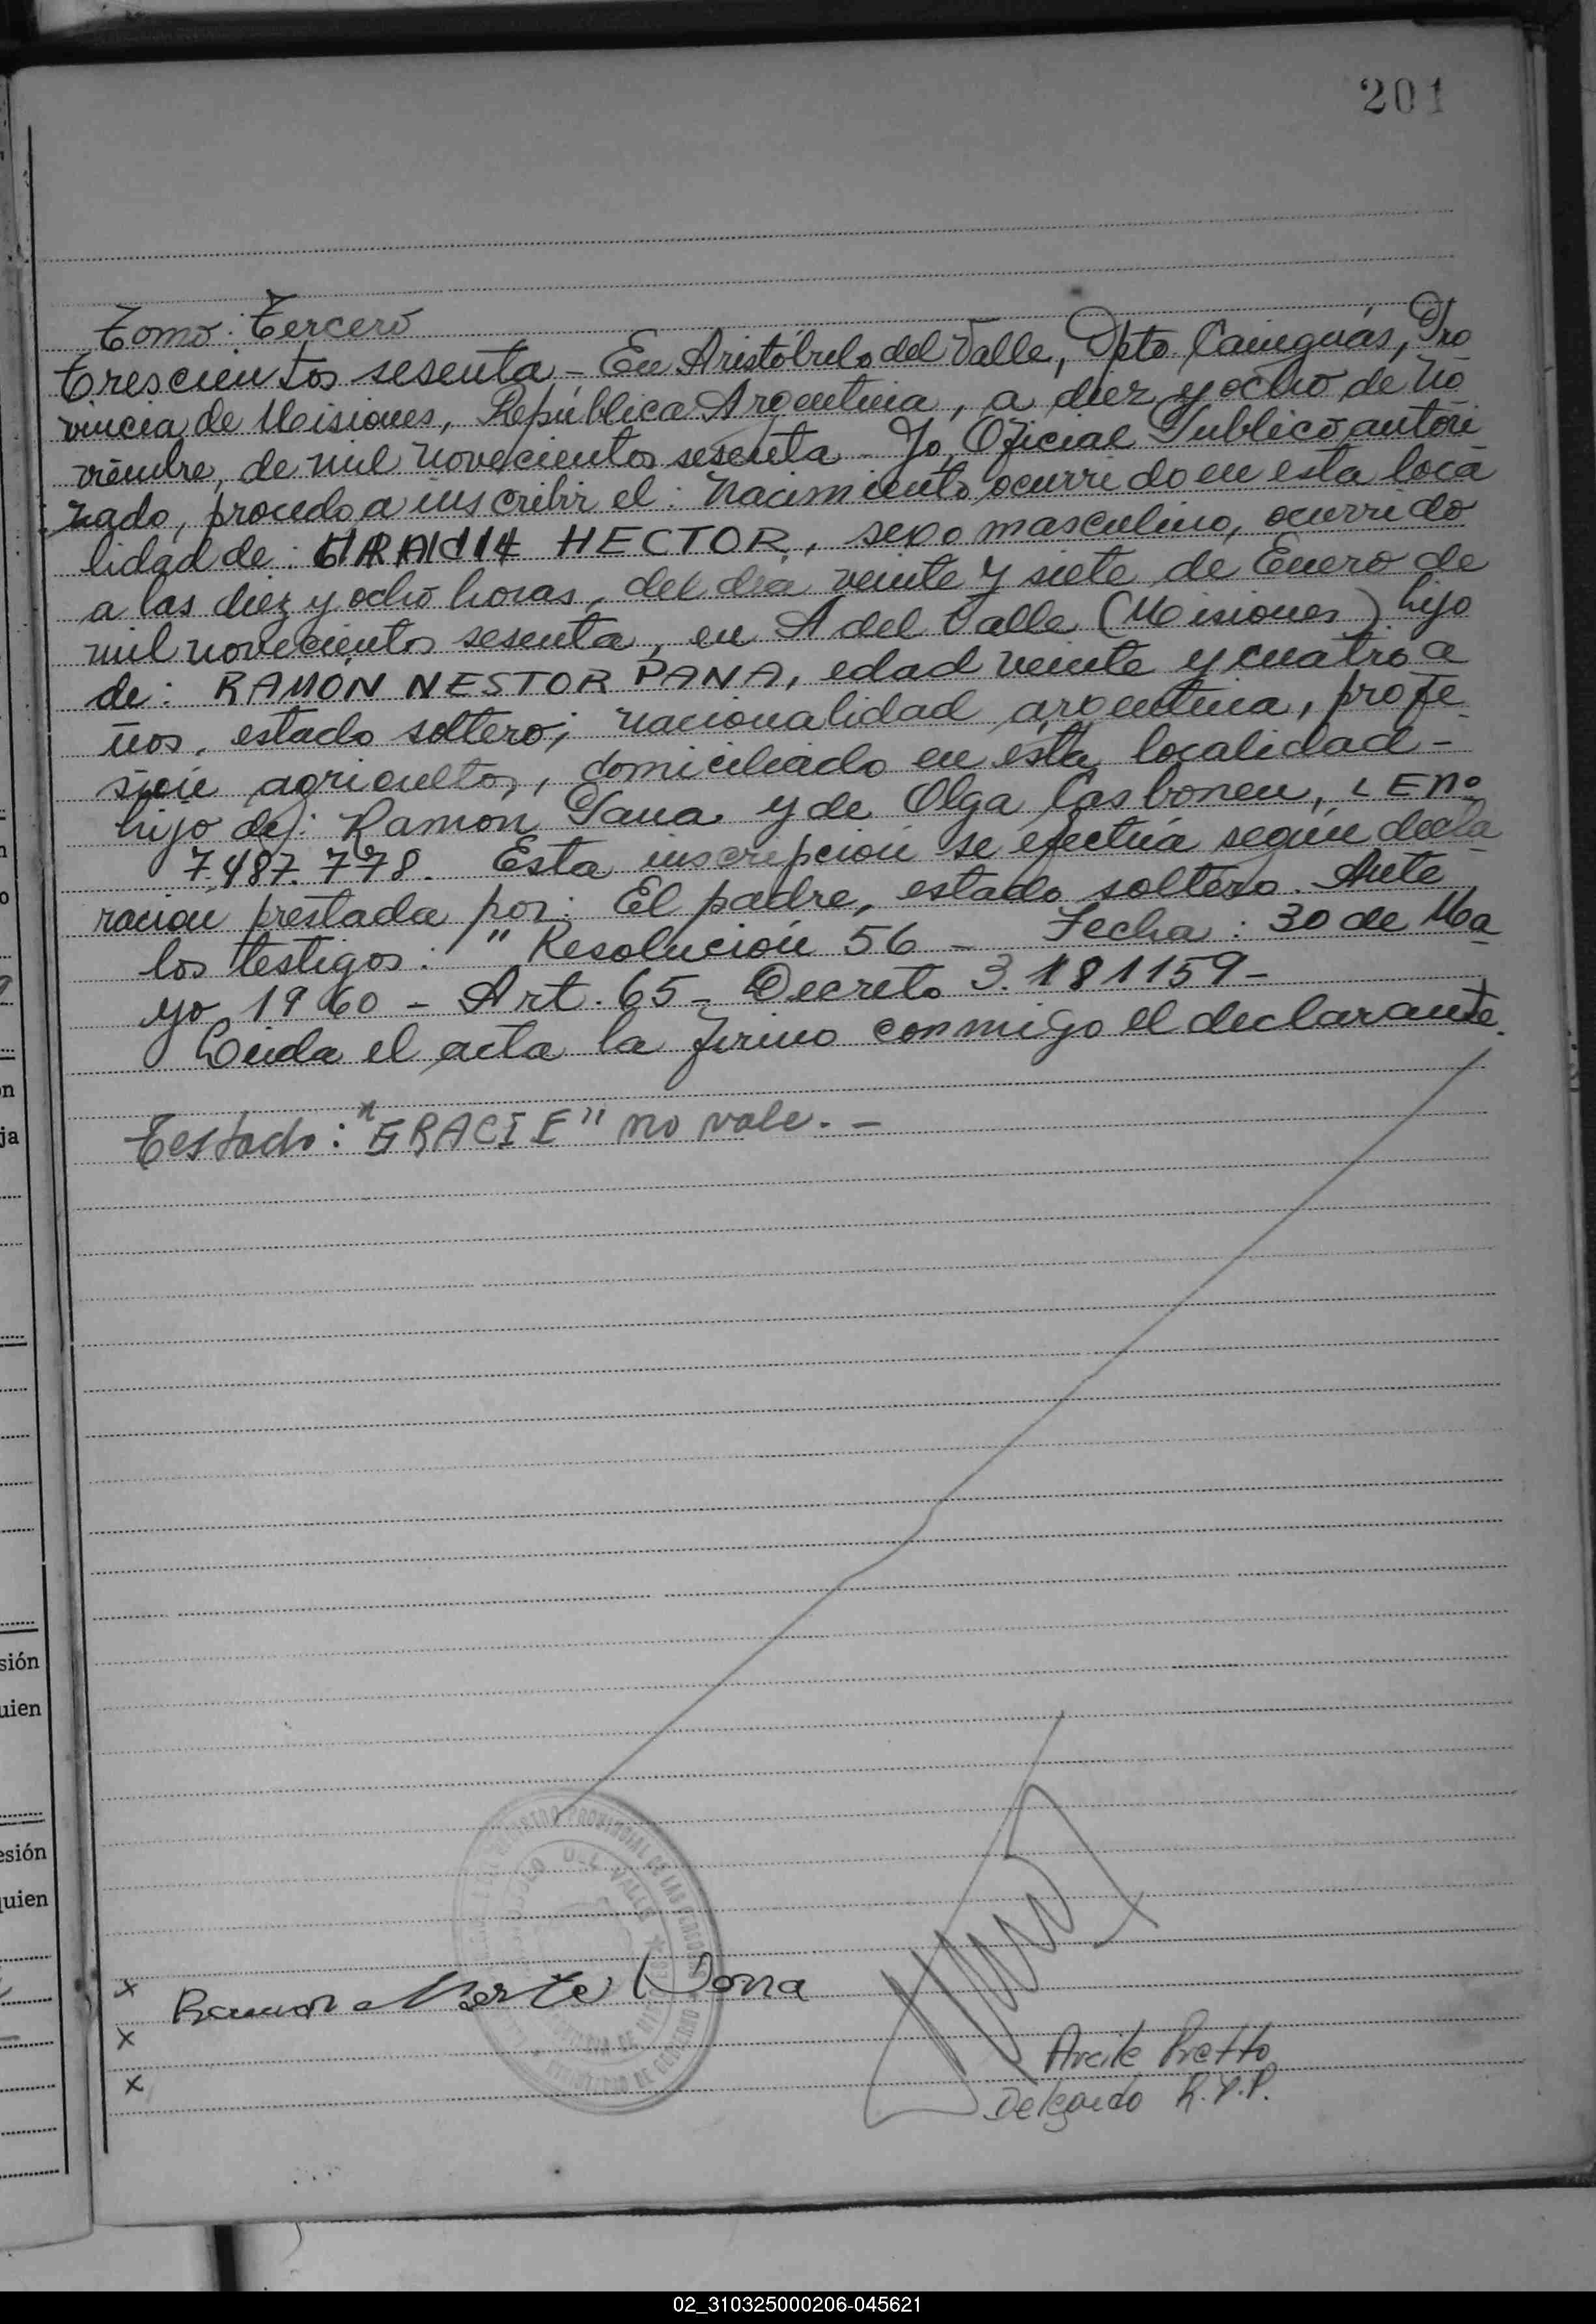 201
Tomo: Tercero
Trescientos sesenta - En Aristóbulo del Valle, Dpto Cainguás, Pro
vincia de Misiones, República Argentina, a diez y ocho de no
viembre, de mil novecientos sesenta - Yo, Oficial Publico autori
zado, procedo a inscribir el: Nacimiento, ocurrido en esta loca
lidad de: HECTOR, sexo masculino, ocurrido
a las diez y ocho horas, del dia veinte y siete de Enero de
mil novecientos sesenta, en A del Valle (Misiones) hijo
de: RAMÓN NESTOR PANA, edad veinte y cuatro a
ños, estado soltero; nacionalidad argentina, profe
sión agricultor, domiciliado en ésta localidad -
hijo de: Ramón Pana y de Olga Casbonen, LE nº
7.487.778. Esta inscripción se efectúa según decla
ración prestada por: El padre, estado soltero. Ante
los testigos: " Resolución 56 - Fecha: 30 de Ma
yo 1960 - Art. 65 - Decreto 3.181159 -
Leida el acta la firmo conmigo el declarante.
Testado: "GRACIE" no vale. -
REGISTRO PROVINCIAL DE LAS PERSONAS
DEL VALLE
MINISTERIO DE GOBIERNO
x Ramon
x
x
Pretto
Delgado R.P.P.
sión
uien
esión
quien
ja
02_310325000206-045621